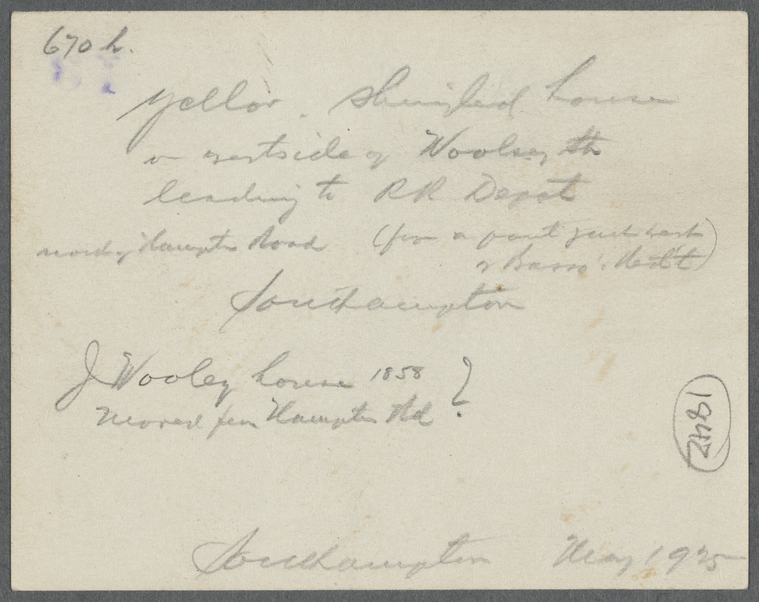 670 h.
Yellow. Shingled house
on westside of Woolsey St
leading to RR Depot
north of Hampton Road (from a point just west
of Bass'. Red't)
Southampton
J Wooley house 1858 ?
moved from Hampton Rd
1842
Southampton May 1925